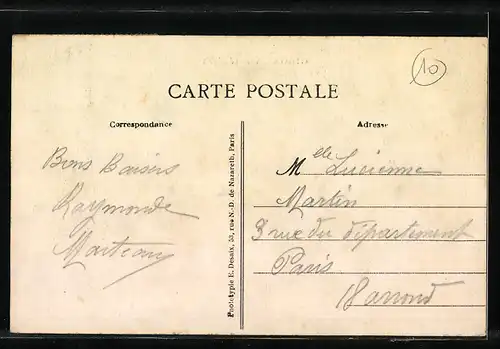 10
CARTE POSTALE
Correspondance
Adresse
Bons Baisers
Raymonde
Marteau
Phototypie E. Desaix, 53, rue N.-D. de Nazareth, Paris
Melle Lucienne
Martin
3 rue du département
Paris
18 arrond